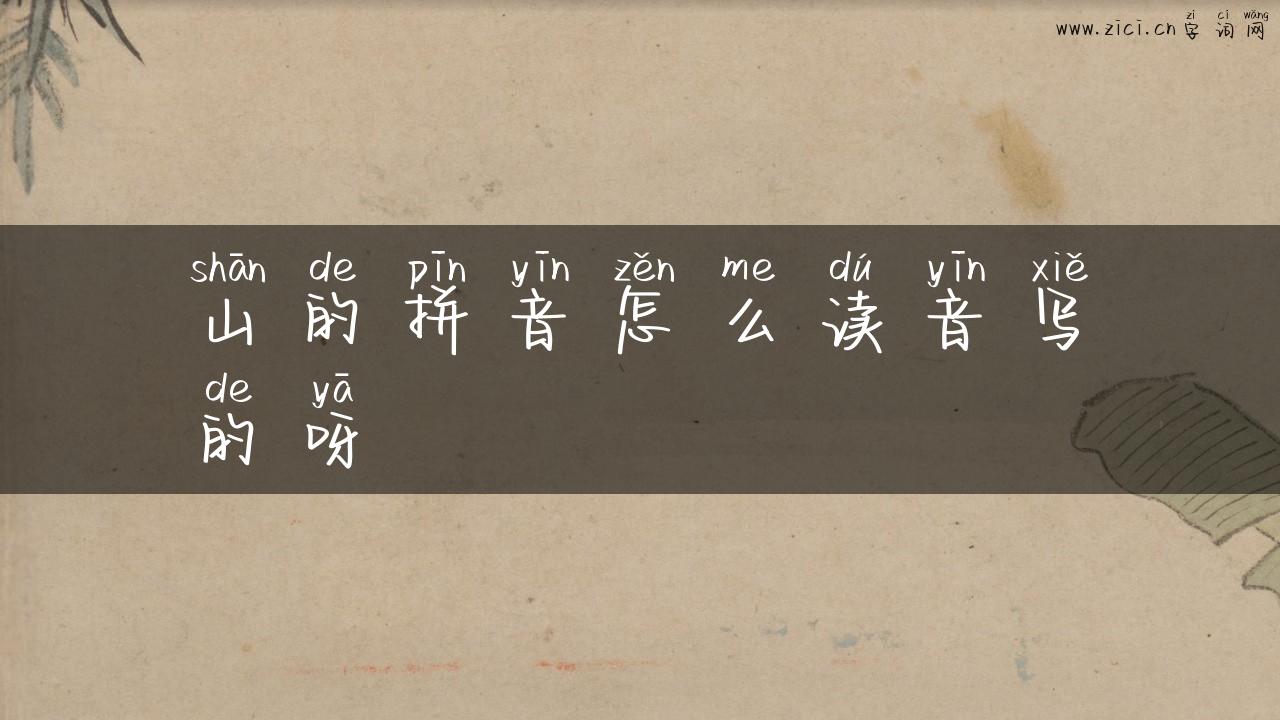 zì cí wǎng
www.zici.cn 字 词 网
shān de pīn yīn zěn me dú yīn xiě
山 的 拼 音 怎 么 读 音 写
de yā
的 呀